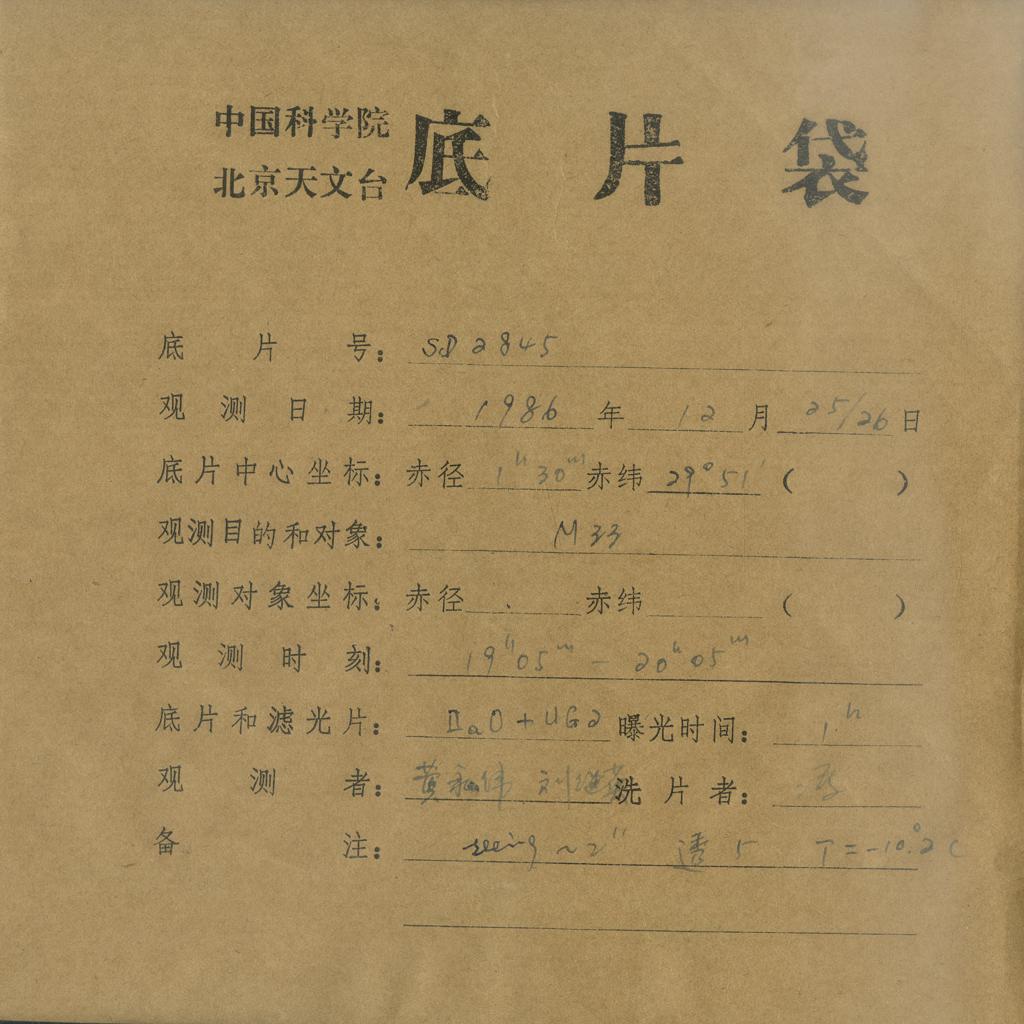 中国科学院
北京天文台 底片袋
底片号： SD 2845
观测日期： 1986 年 12 月 25/26 日
底片中心坐标： 赤径 1ʰ 30ᵐ 赤纬 29° 51′ ( )
观测目的和对象： M 33
观测对象坐标： 赤径 赤纬 ( )
观测时刻： 19ʰ05ᵐ - 20ʰ05ᵐ
底片和滤光片： IIaO + UG2 曝光时间： 1ʰ
观测者： 黄 伟 刘 洗片者：
备注： seeing ~2″ 透 5 T = -10.°2 C